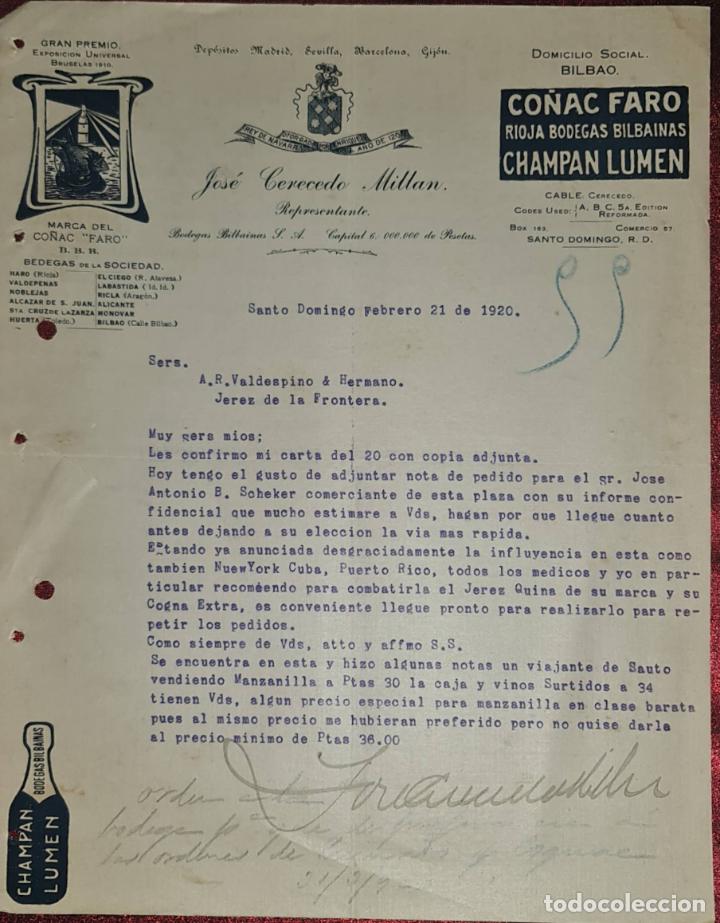 GRAN PREMIO.
EXPOSICION UNIVERSAL
BRUSELAS 1910.
MARCA DEL
COÑAC "FARO"
B. B. B.
BEDEGAS DE LA SOCIEDAD.
HARO (Rioja) ELCIEGO (R. Alavesa.)
VALDEPENAS LABASTIDA (Id. Id.)
NOBLEJAS RICLA (Aragón.)
ALCAZAR DE S. JUAN. ALICANTE
STA. CRUZ DE LA ZARZA MONOVAR
HUERTA (Toledo.) BILBAO (Calle Bilbao.)
Depósitos Madrid, Sevilla, Barcelona, Gijón.
REY DE NAVARRA OTORGADO POR ENRIQUE AÑO DE 120
José Cerecedo Millan.
Representante.
Bodegas Bilbainas S. A. Capital 6.000.000 de Pesetas.
DOMICILIO SOCIAL.
BILBAO.
COÑAC FARO
RIOJA BODEGAS BILBAINAS
CHAMPAN LUMEN
CABLE. CERECEDO.
CODES USED: A. B. C. 5A. EDITION
REFORMADA.
BOX 163. COMERCIO 57.
SANTO DOMINGO, R. D.
Santo Domingo Febrero 21 de 1920.
Sers.
A.R.Valdespino & Hermano.
Jerez de la Frontera.
Muy sers mios;
Les confirmo mi carta del 20 con copia adjunta.
Hoy tengo el gusto de adjuntar nota de pedido para el sr. Jose
Antonio B. Scheker comerciante de esta plaza con su informe con-
fidencial que mucho estimare a Vds, hagan por que llegue cuanto
antes dejando a su eleccion la via mas rapida.
Estando ya anunciada desgraciadamente la influyencia en esta como
tambien NuewYork Cuba, Puerto Rico, todos los medicos y yo en par-
ticular recoméendo para combatirla el Jerez Quina de su marca y su
Cogna Extra, es conveniente llegue pronto para realizarlo para re-
petir los pedidos.
Como siempre de Vds, atto y affmo S.S.
Se encuentra en esta y hizo algunas notas un viajante de Sauto
vendiendo Manzanilla a Ptas 30 la caja y vinos Surtidos a 34
tienen Vds, algun precio especial para manzanilla en clase barata
pues al mismo precio me hubieran preferido pero no quise darla
al precio minimo de Ptas 36.00
CHAMPAN LUMEN
BODEGAS BILBAINAS